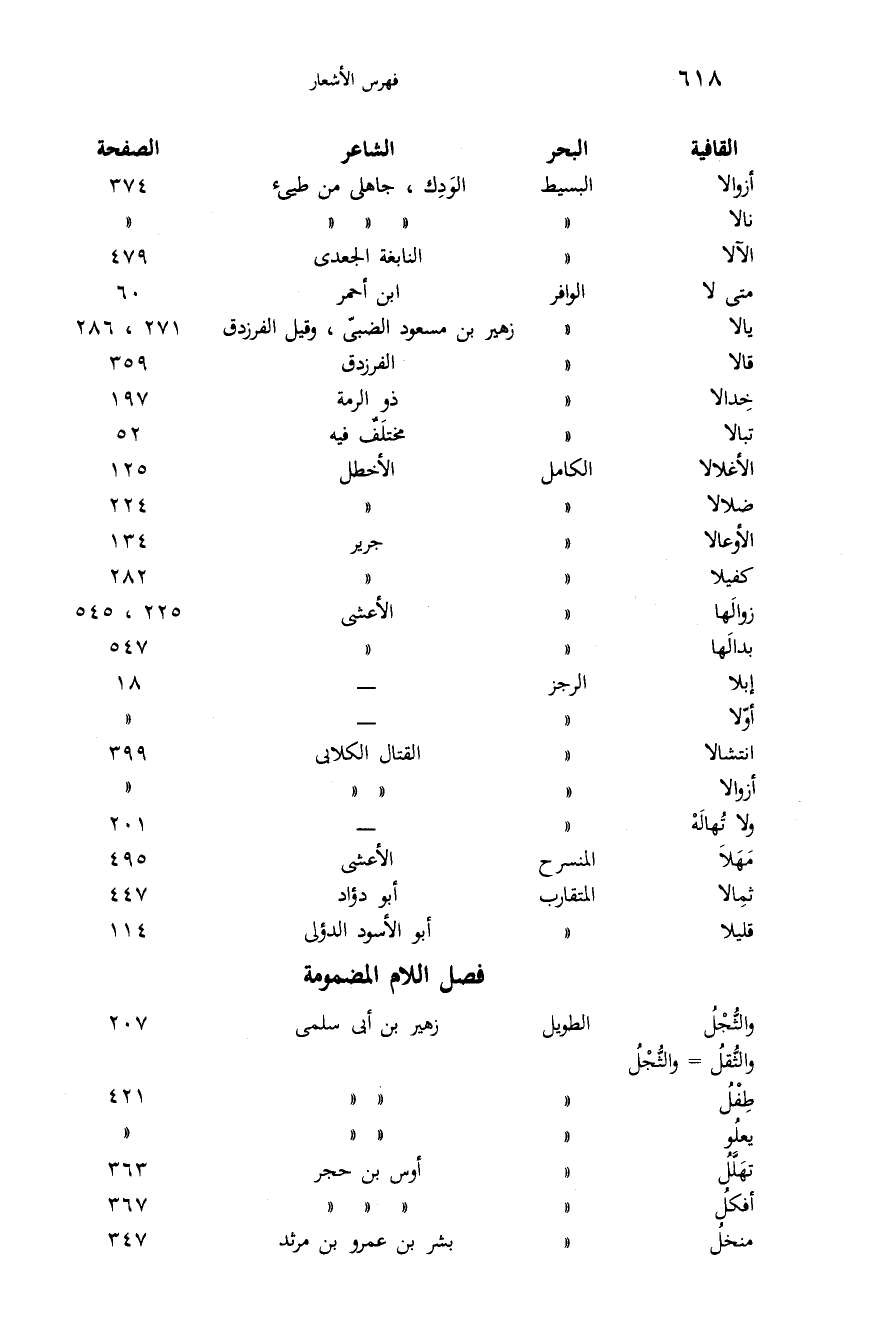 ٦١٨ فهرس الأشعار
القافية البحر الشاعر الصفحة
أزوالا البسيط الوَدِك ، جاهلى من طيىء ٣٧٤
نالا » » » » »
الآلا » النابغة الجعدى ٤٧٩
متى لا الوافر ابن أحمر ٦٠
يالا » زهير بن مسعود الضبىّ ، وقيل الفرزدق ٢٧١ ، ٢٨٦
قالا » الفرزدق ٣٥٩
خِدالا » ذو الرمة ١٩٧
تبالا » مختلَفٌ فيه ٥٢
الأغلالا الكامل الأخطل ١٢٥
ضلالا » » ٢٢٤
الأوعالا » جرير ١٣٤
كفيلا » » ٢٨٢
زوالَها » الأعشى ٢٢٥ ، ٥٤٥
بدالَها » » ٥٤٧
إبلا الرجز — ١٨
أوّلا » — »
انتشالا » القتال الكلابى ٣٩٩
أزوالا » » » »
ولا تُهالَهْ » — ٢٠١
مَهَلاَ المنسرح الأعشى ٤٩٥
ثمِالا المتقارب أبو دؤاد ٤٤٧
قليلا » أبو الأسود الدؤلى ١١٤
فصل اللام المضمومة
والثُّجْلُ الطويل زهير بن أبى سلمى ٢٠٧
والثُّقلُ = والثُّجْلُ
طِفْلُ » » » ٤٢١
يعلُو » » » »
تهَلَّلُ » أوس بن حجر ٣٦٣
أفكلُ » » » » ٣٦٧
منخلُ » بشر بن عمرو بن مرثد ٣٤٧